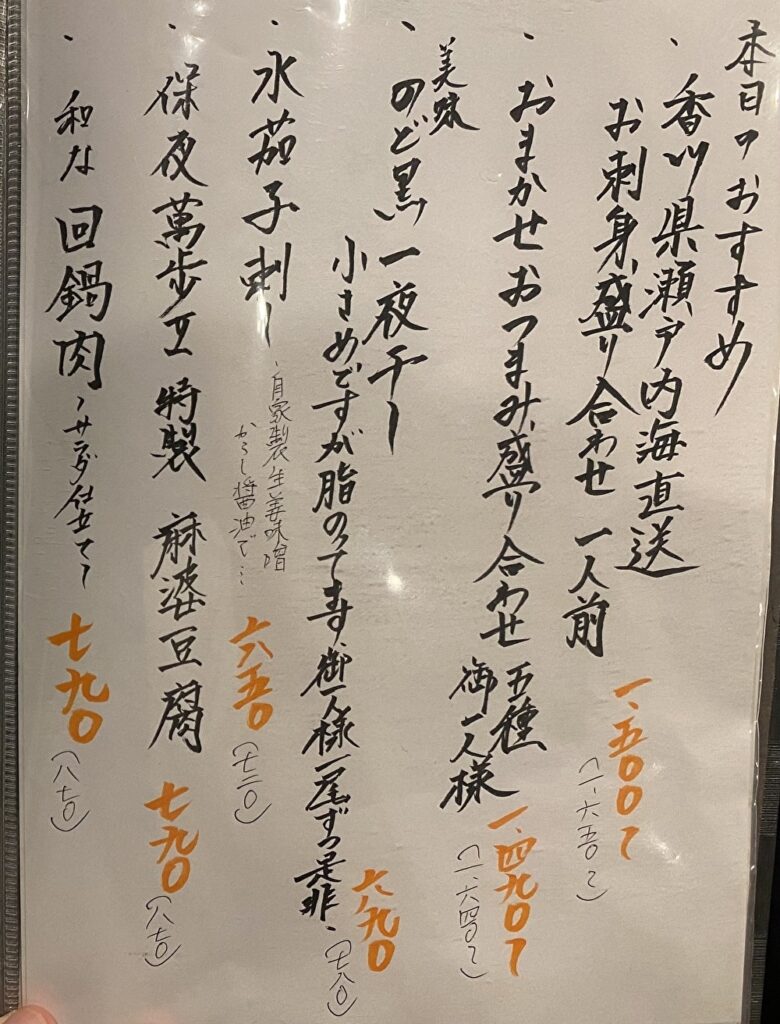 本日のおすすめ
・香川県瀬戸内海直送
お刺身盛り合わせ 一人前
一、五〇〇〜
(一、六五〇〜)
・おまかせおつまみ盛り合わせ 五種
御一人様
一、四九〇〜
(一、六四〇〜)
美味
・のど黒一夜干し
小さめですが脂のってます、御一人様一尾ずつ是非、
六九〇
(七六〇)
・水茄子刺し
、自家製生姜味噌
からし醤油で…
六五〇
(七二〇)
・保夜萬歩 特製 麻婆豆腐
七九〇
(八七〇)
・和な 回鍋肉 〜サラダ仕立て〜
七九〇
(八七〇)